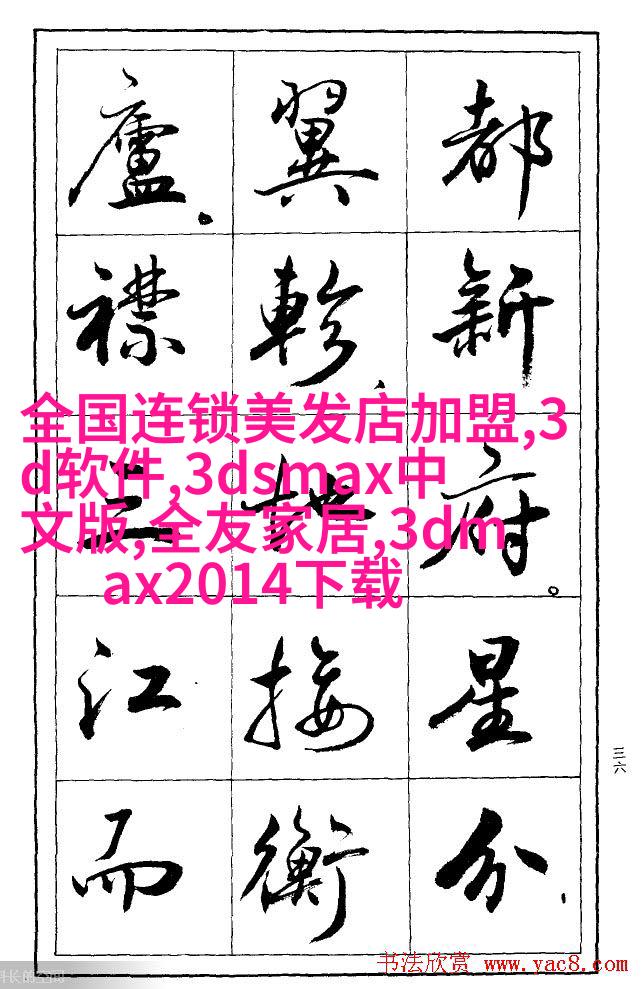 都新府。星分
翼軫、地接衡
廬。襟三江而
全国连锁美发店加盟,3
d软件,3dsmax中
文版,全友家居,3dm
ax2014下载
三六
长的空间
书法欣赏 www.yac8.com